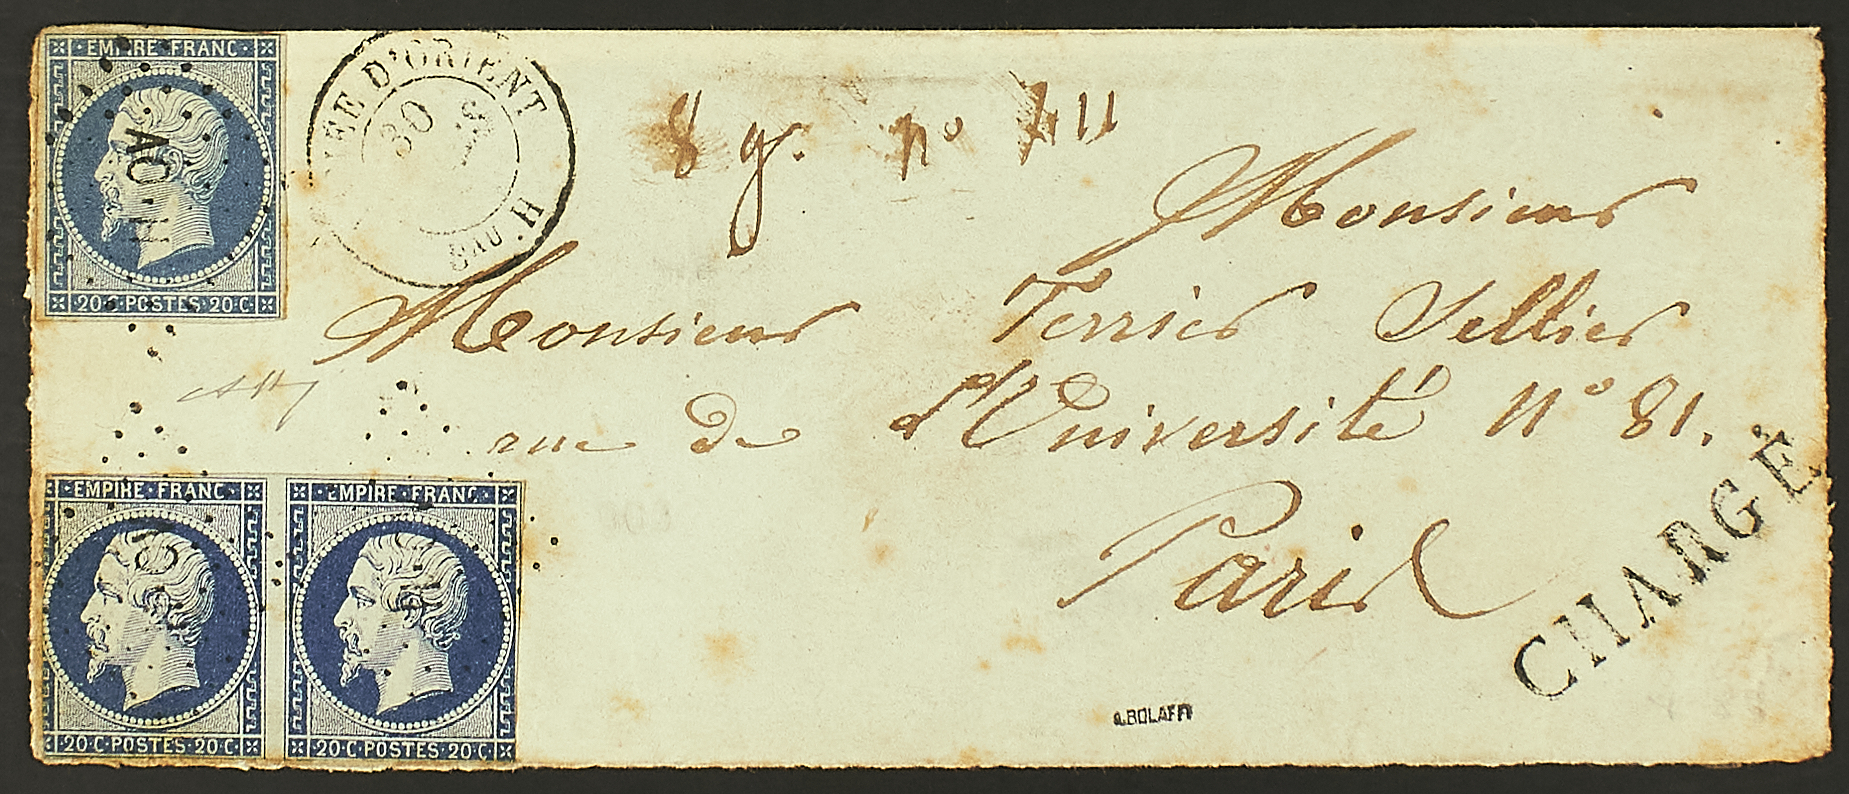 EMPIRE FRANC
20 C POSTES 20 C
AO
D'ORIENT
30
Bau H
8 g. n° 411
Monsieur
Monsieur Terrier Sellier
rue de l'Université N° 81.
Paris
CHARGÉ
EMPIRE FRANC EMPIRE FRANC
20 C POSTES 20 C 20 C POSTES 20 C
A.BOLAFFI